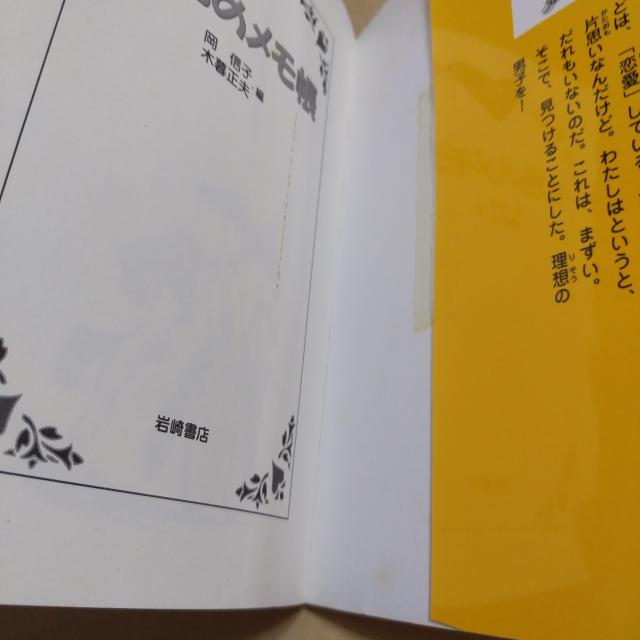 とは、「恋愛」している
片思いなんだけど。わたしはというと、
だれもいないのだ。これは、まずい。
そこで、見つけることにした。理想の
男子を！
めメモ帳
岡 信子
木暮正夫 編
岩崎書店